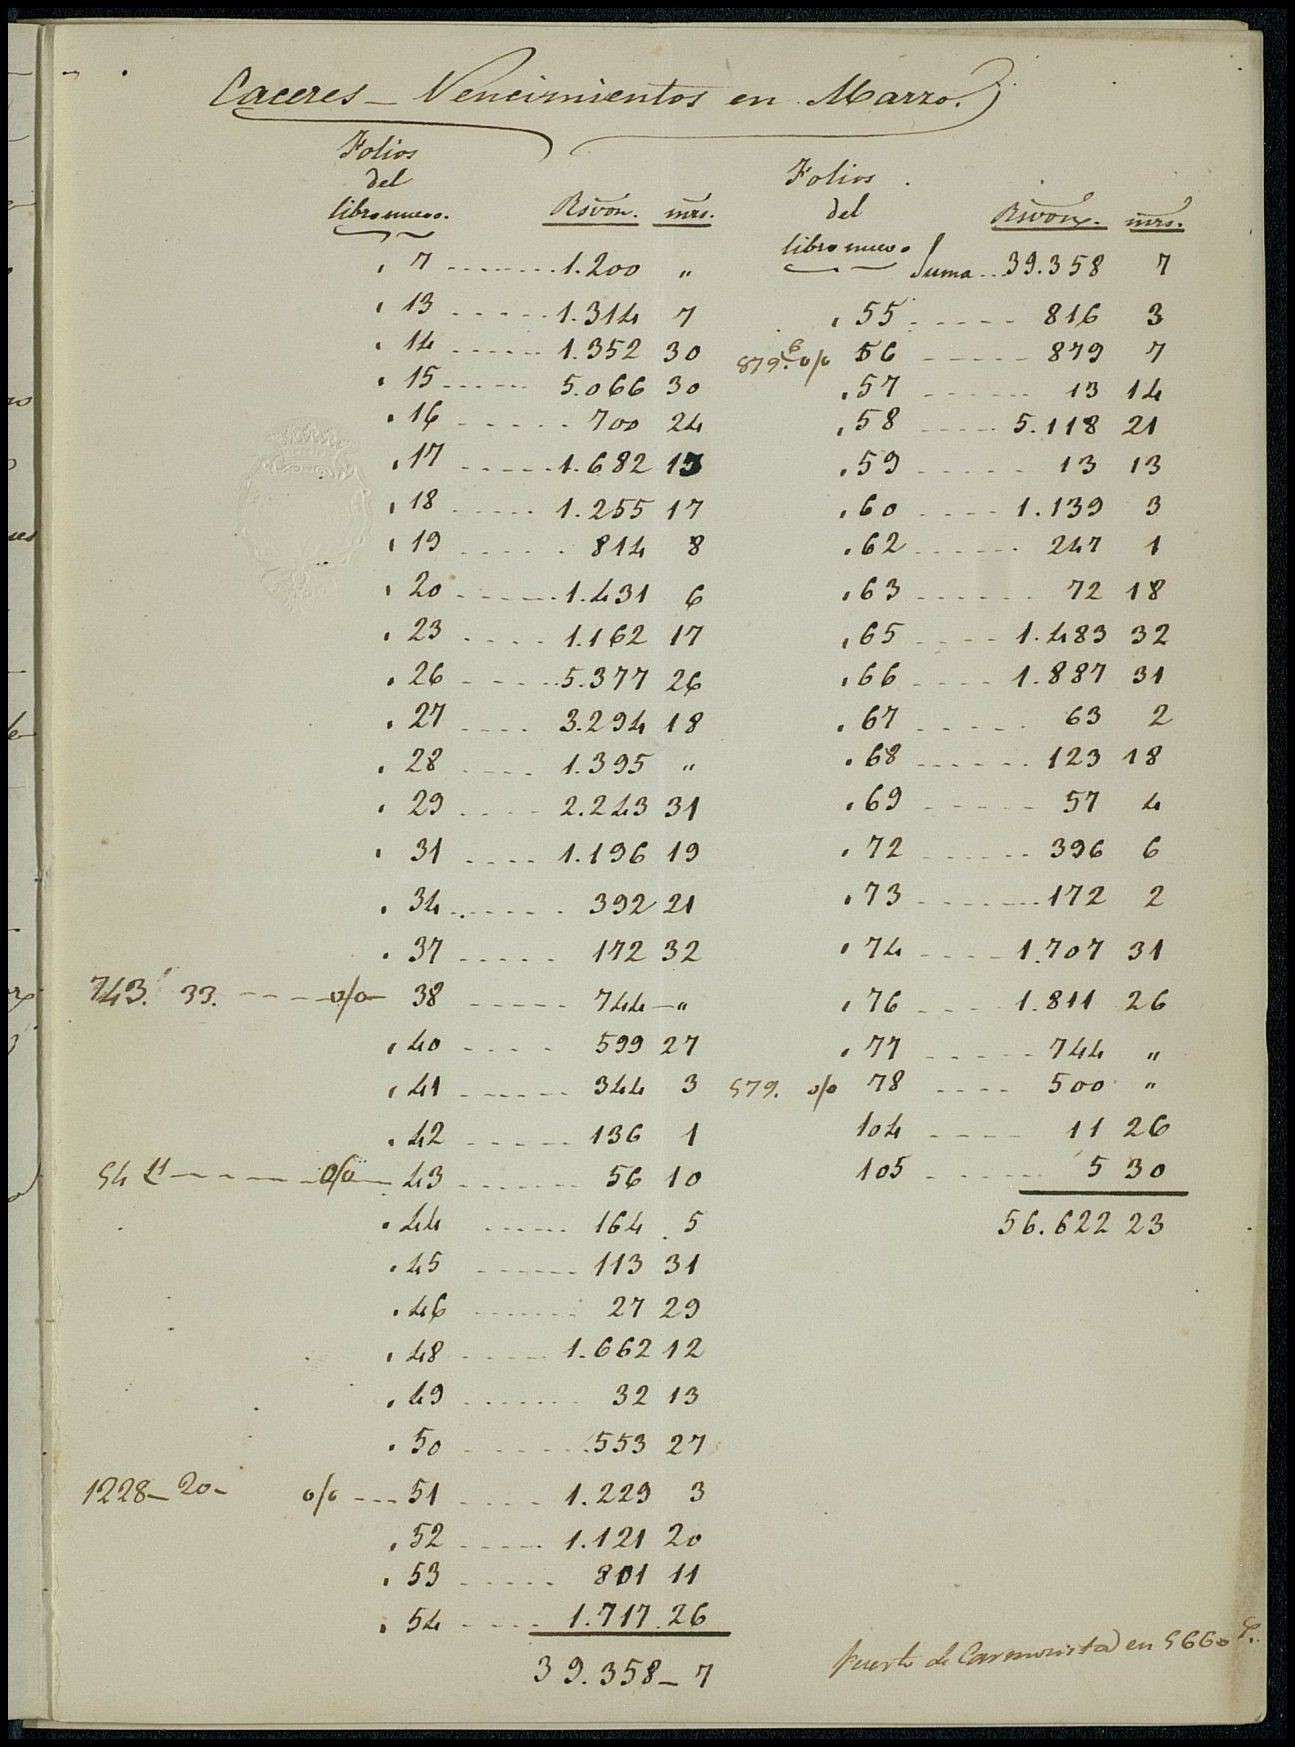 Caceres – Vencimientos en Marzo.
Folios
del
libro nuevo. Rsvon. mrs.
7 1.200 "
13 1.314 7
14 1.352 30
15 5.066 30
16 700 24
17 1.682 13
18 1.255 17
19 814 8
20 1.431 6
23 1.162 17
26 5.377 26
27 3.294 18
28 1.395 "
29 2.243 31
31 1.196 19
34 392 21
37 172 32
743. 33. o/o 38 744 – "
40 599 27
41 344 3
42 136 1
54 o/o 43 56 10
44 164 5
45 113 31
46 27 29
48 1.662 12
49 32 13
50 553 27
1228– 20– o/o 51 1.229 3
52 1.121 20
53 801 11
54 1.717 26
39.358 – 7
Folios
del
libro nuevo Rsvon. mrs.
Suma 39.358 7
55 816 3
879. 6 o/o 56 879 7
57 13 14
58 5.118 21
59 13 13
60 1.139 3
62 247 1
63 72 18
65 1.483 32
66 1.887 31
67 63 2
68 123 18
69 57 4
72 396 6
73 172 2
74 1.707 31
76 1.811 26
77 744 "
579. o/o 78 500 "
104 11 26
105 5 30
56.622 23
de en 5660